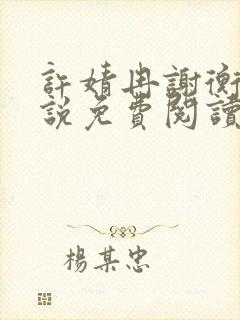 許婧冉謝衡
説免費閱讀
楊某忠